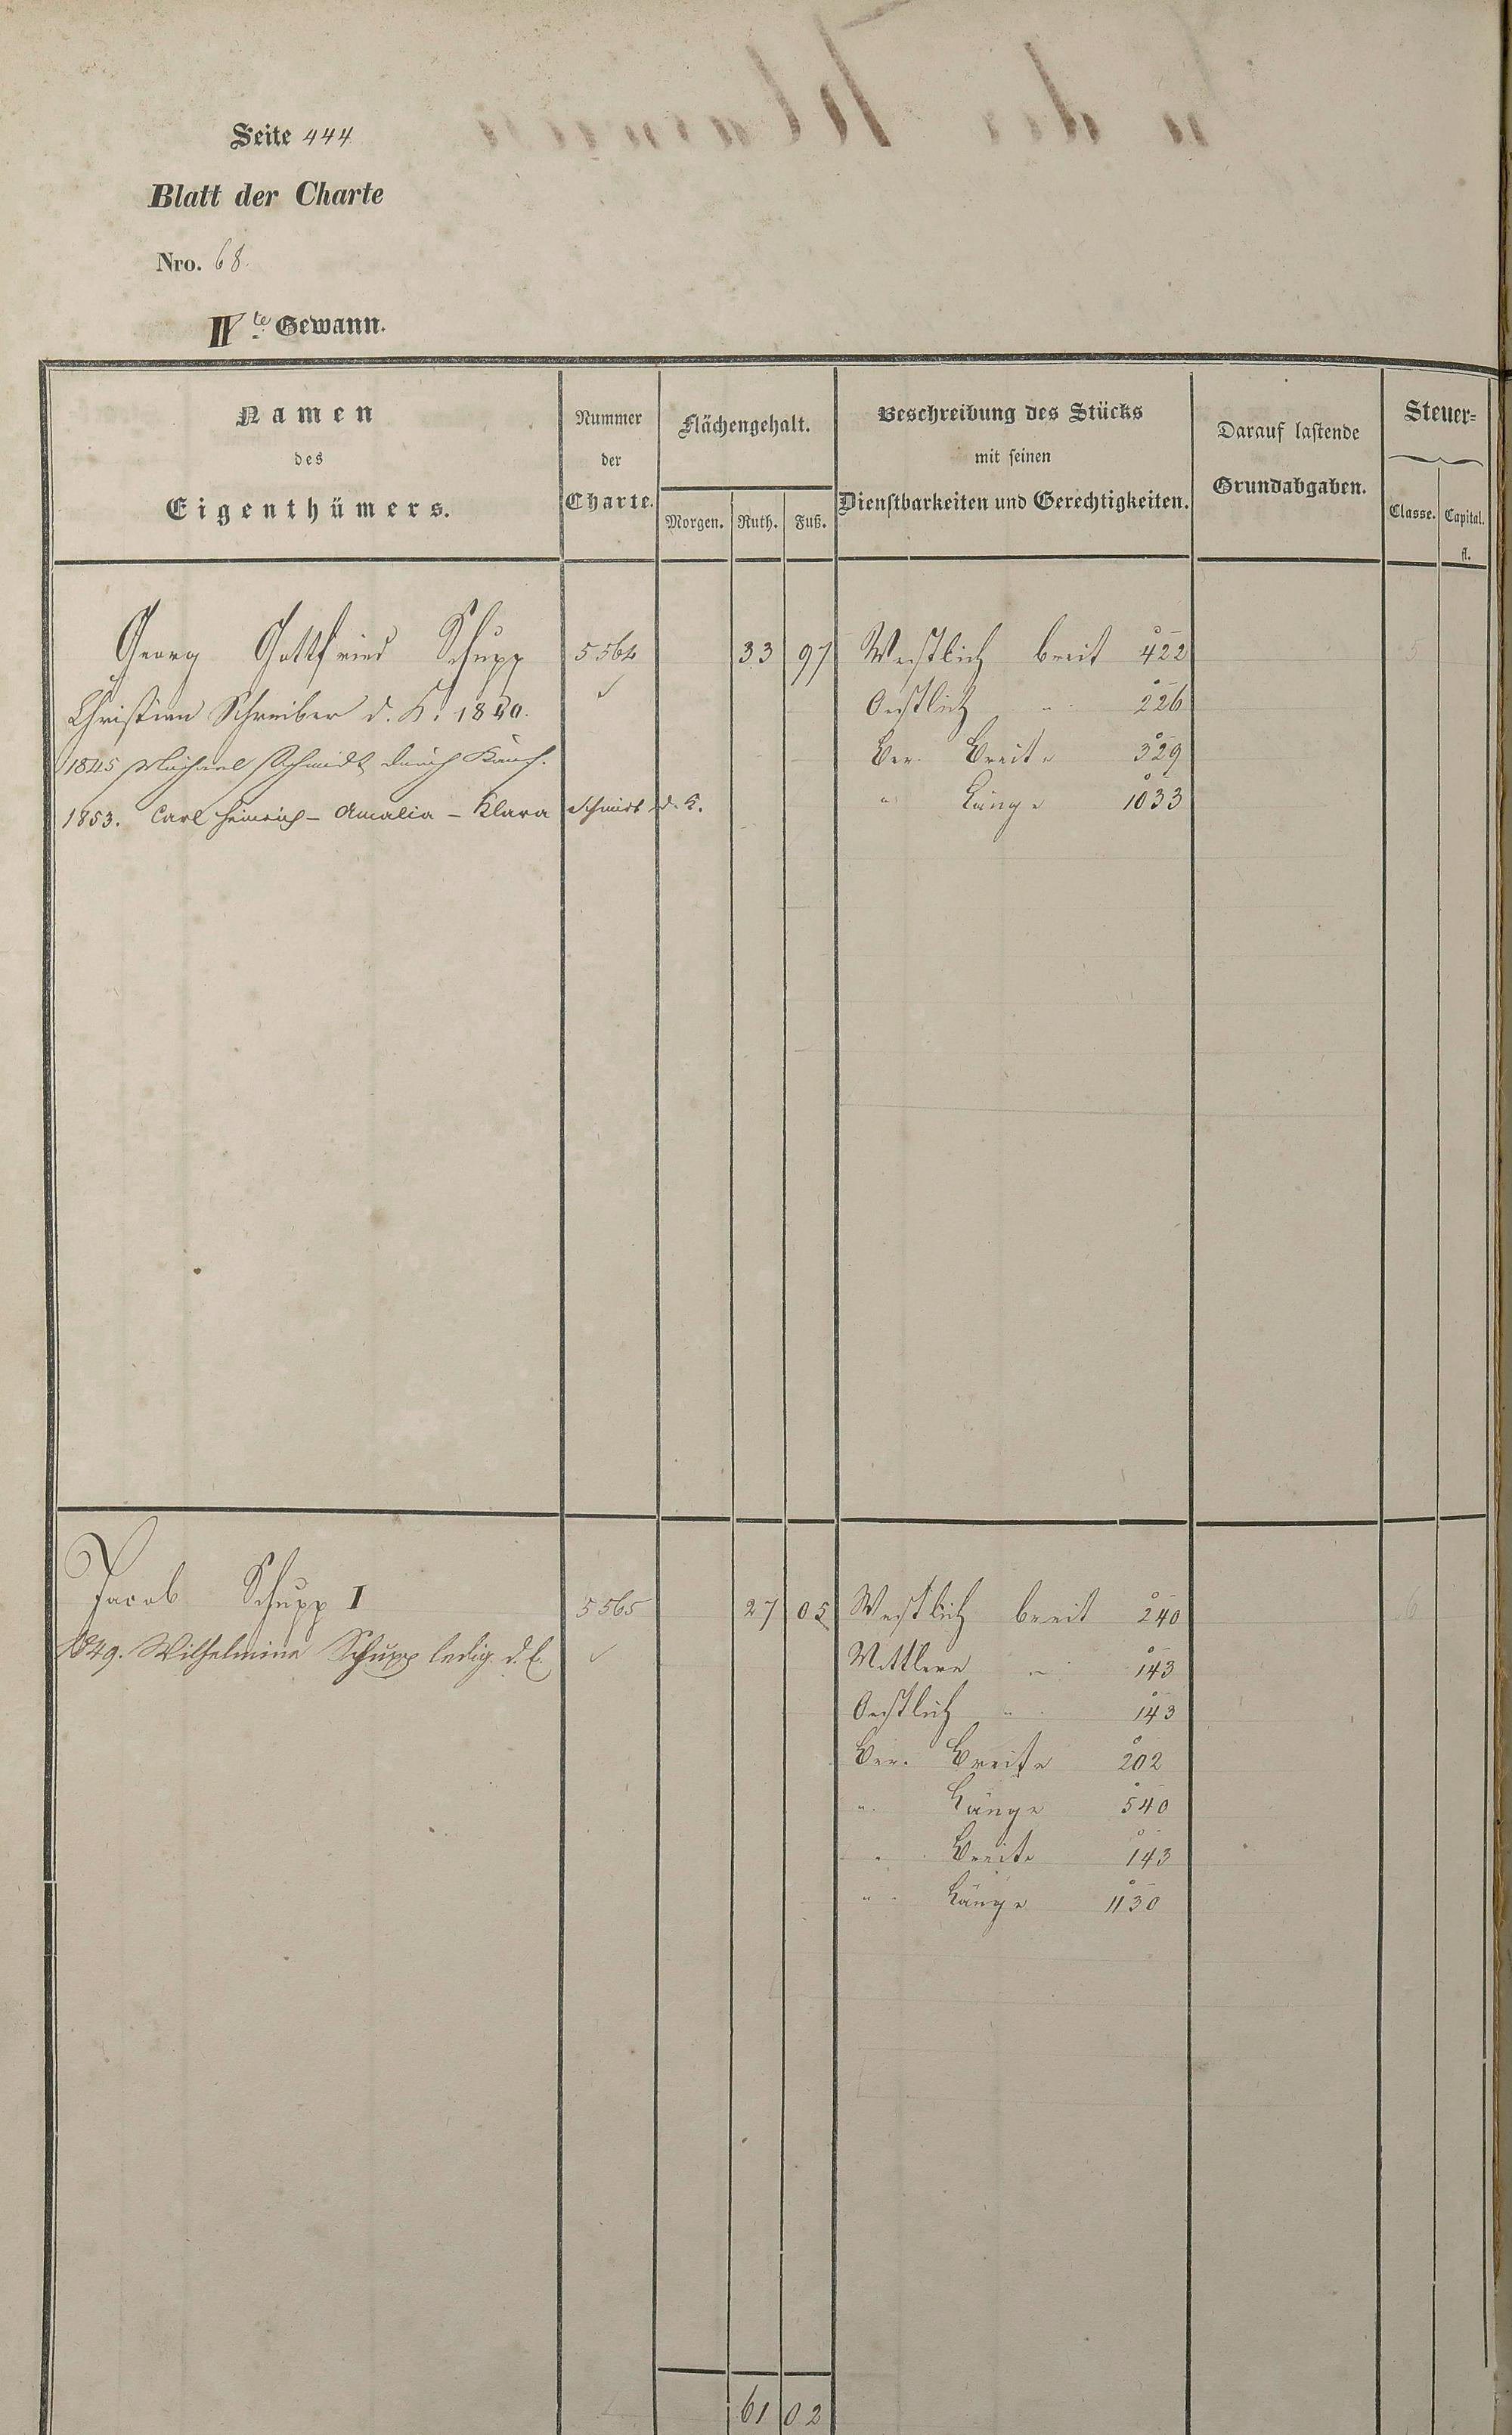 Seite 444
Blatt der Charte
Nro. 68.
IVte Gewann.
Namen des Eigenthümers.
Nummer der Charte.
Flächengehalt.
Morgen. Ruth. Fuß.
Beschreibung des Stücks mit seinen Dienstbarkeiten und Gerechtigkeiten.
Darauf lastende Grundabgaben.
Steuer=
Classe. Capital.
fl.
Georg Gottfried Schupp 5564 33 97 Westlich breit 422 5
Christian Schreiber d. K. 1840. Oestlich " 226
1845 Michael Schmidt durch Kauf. Ver. Breite 329
1853. Carl Heinrich - Amalia - Klara Schmidt d. K. " Länge 1033
Jacob Schupp I 5565 27 05 Westlich breit 240 6
1849. Wilhelmine Schupp ledig. d. E. Mittlere " 143
Oestlich " 143
Ver. Breite 202
" Länge 540
" Breite 143
" Länge 1130
61 02